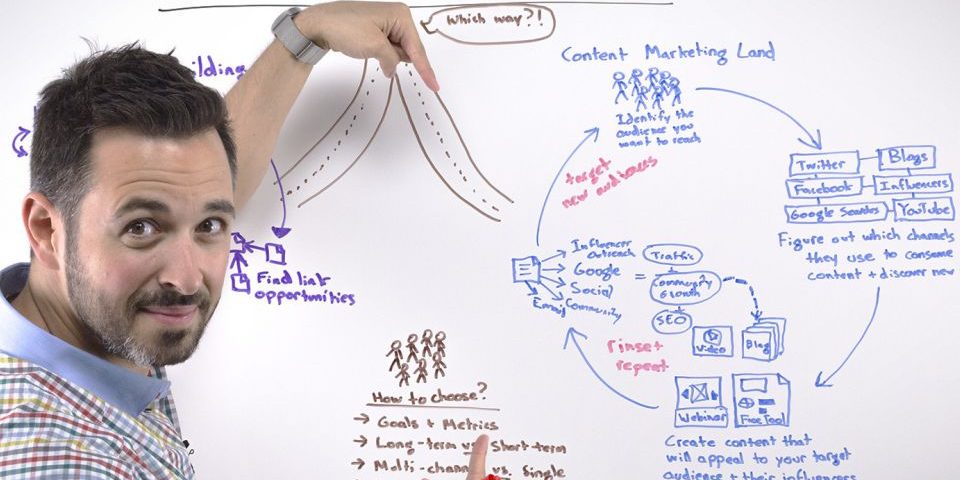 Which way?!
ilding
Find link
opportunities
How to choose?
→ Goals + Metrics
→ Long-term vs Short-term
→ Multi-chann vs. Single
Content Marketing Land
Identify the
audience you
want to reach
Twitter
Blogs
Facebook
Influencers
Google Searches
YouTube
Figure out which channels
they use to consume
content + discover new
Create content that
will appeal to your target
audience + their influencers
Webinar
Free Tool
Video
Blog
rinse +
repeat
Influencer
outreach
Google
Social
Community
Email
=
Traffic
+
Community
Growth
+
SEO
target
new audiences